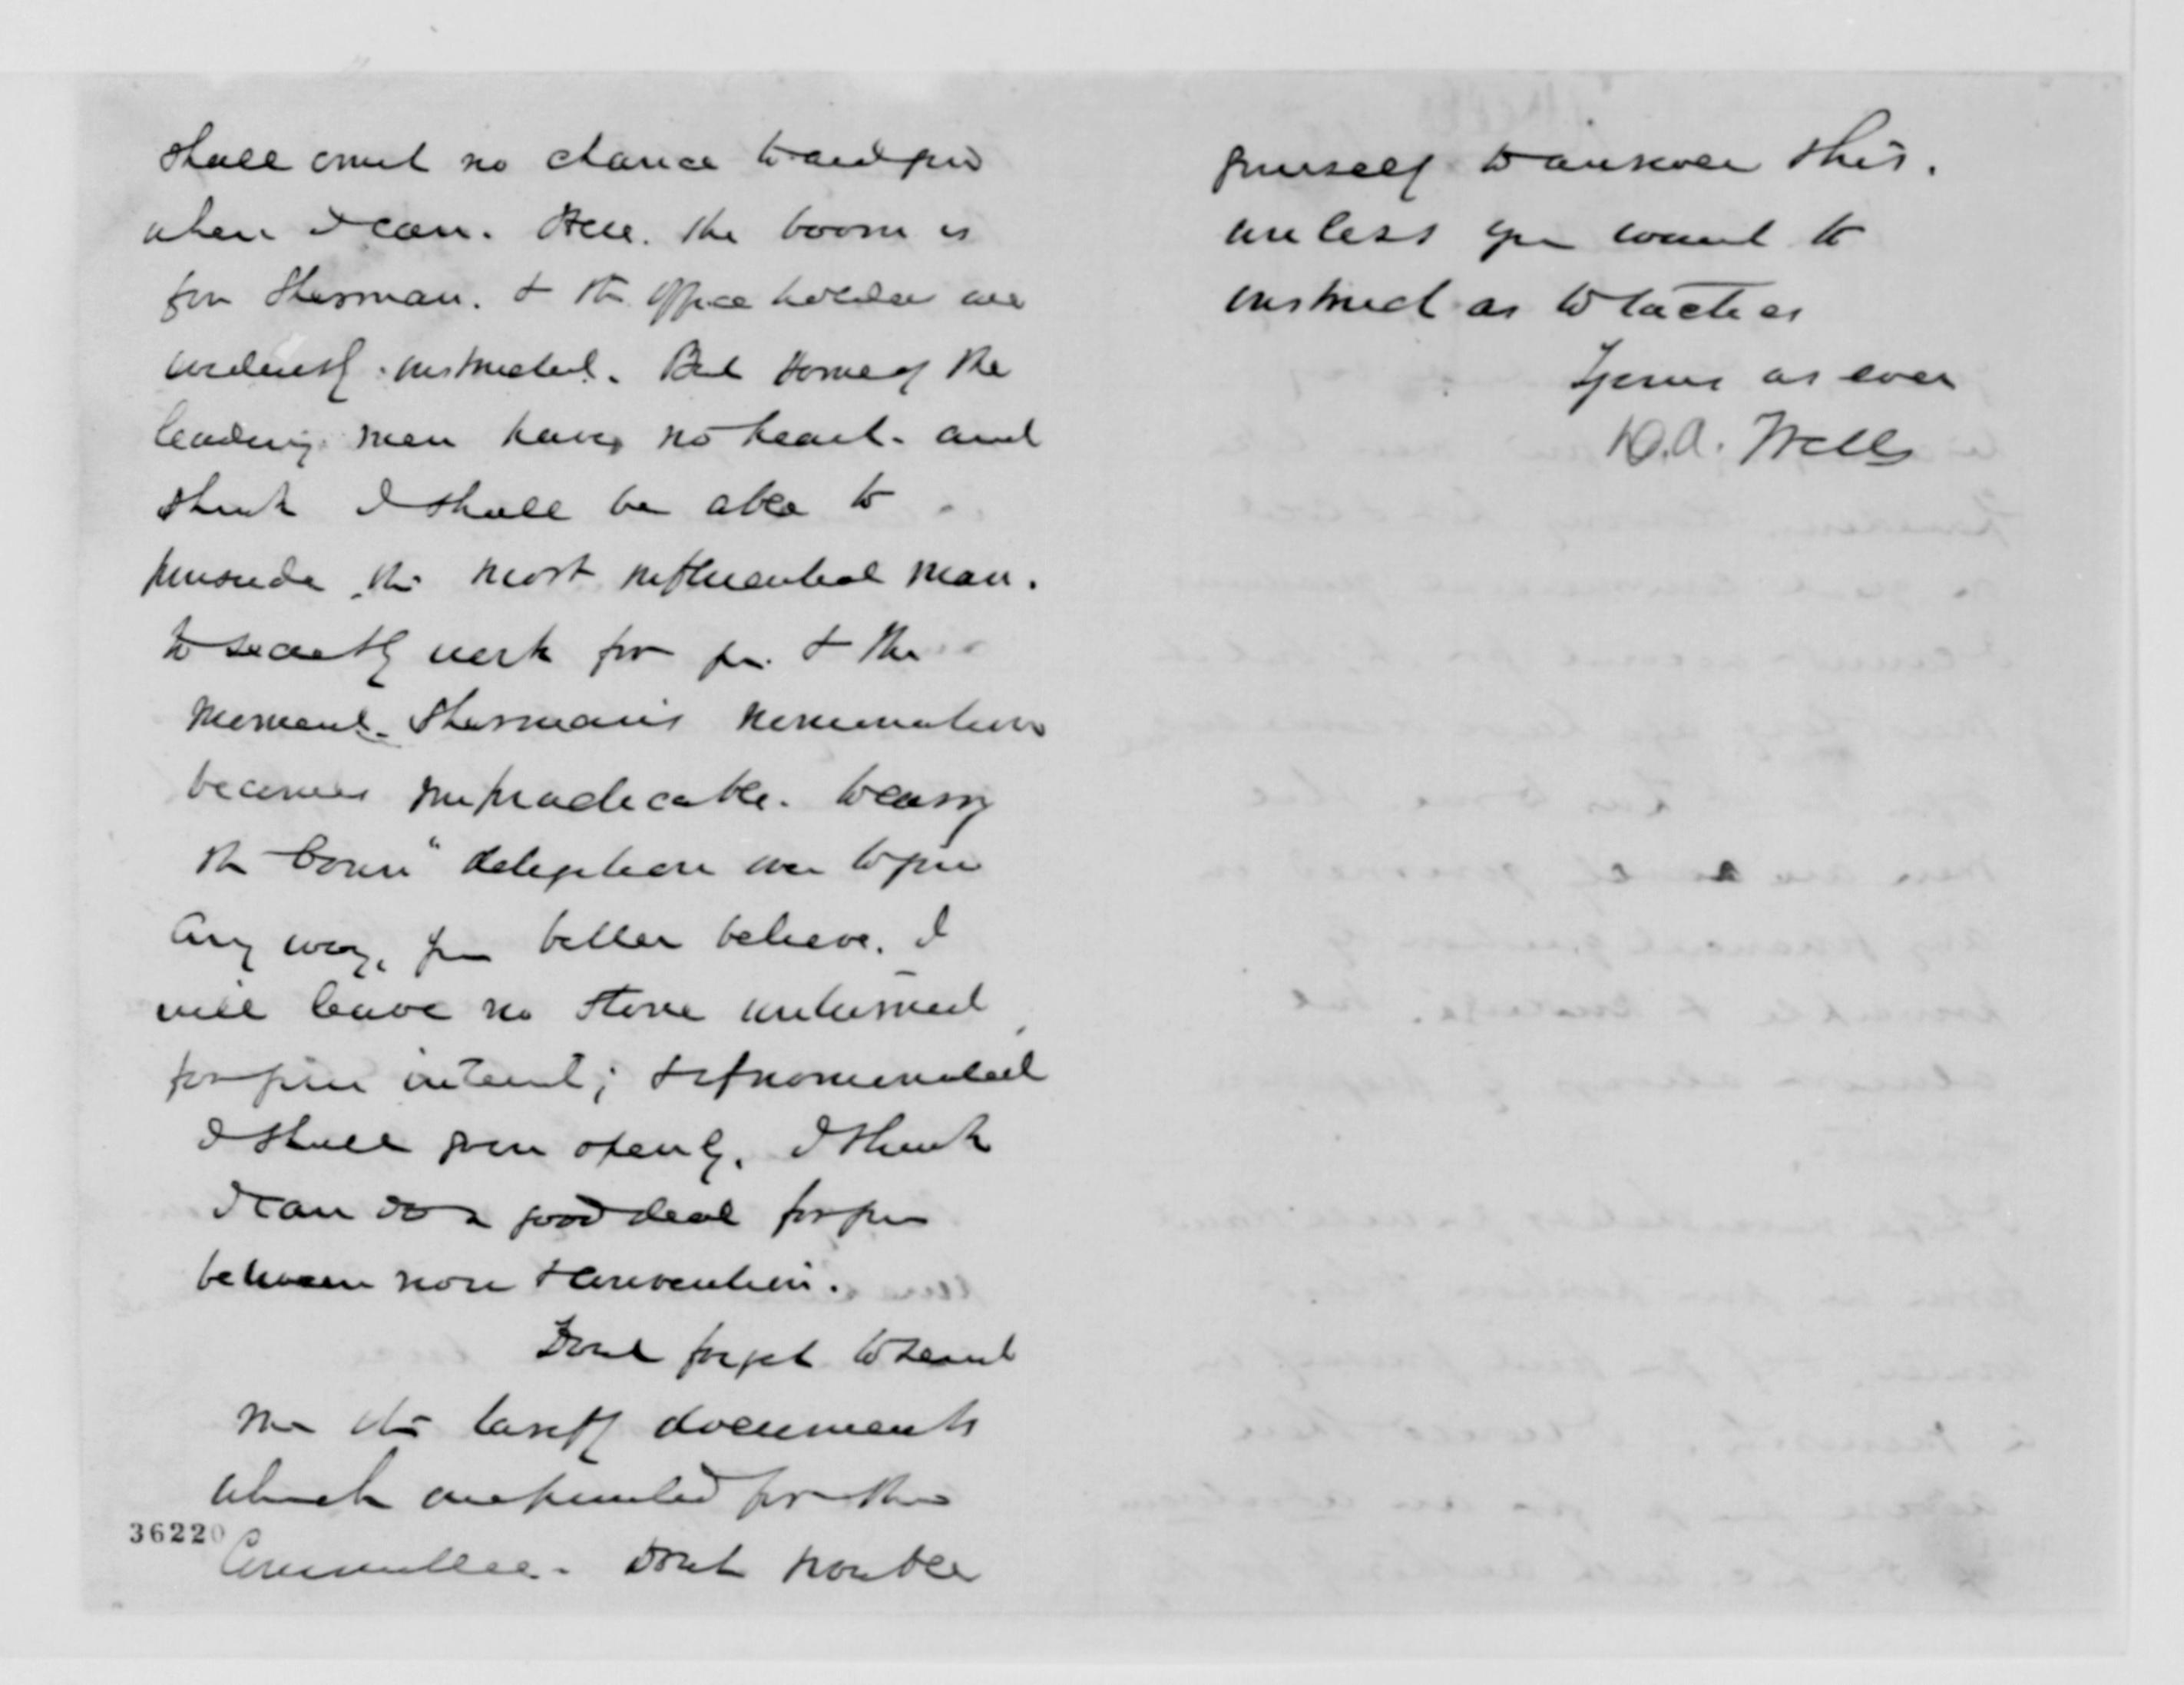 shall omit no chance to aid you
when I can. Here. the boom is
for Sherman. & the office holders are
evidently instructed. But some of the
leading men have no heart. and
think I shall be able to
persuade the most influential man.
to secretly work for you. & the
moment Sherman's nomination
becomes impracticable. to carry
the Conn" delegation over to you
Any way, you better believe. I
will leave no stone unturned
for your interest; & if nominated
I shall join openly. I think
I can do a good deal for you
between now & Convention.
Dont forget to send
me the tariff documents
which are printed for the
36220
Committee. Dont trouble
yourself to answer this.
unless you want to
instruct as to tactics
Yours as ever
D.A. Wells